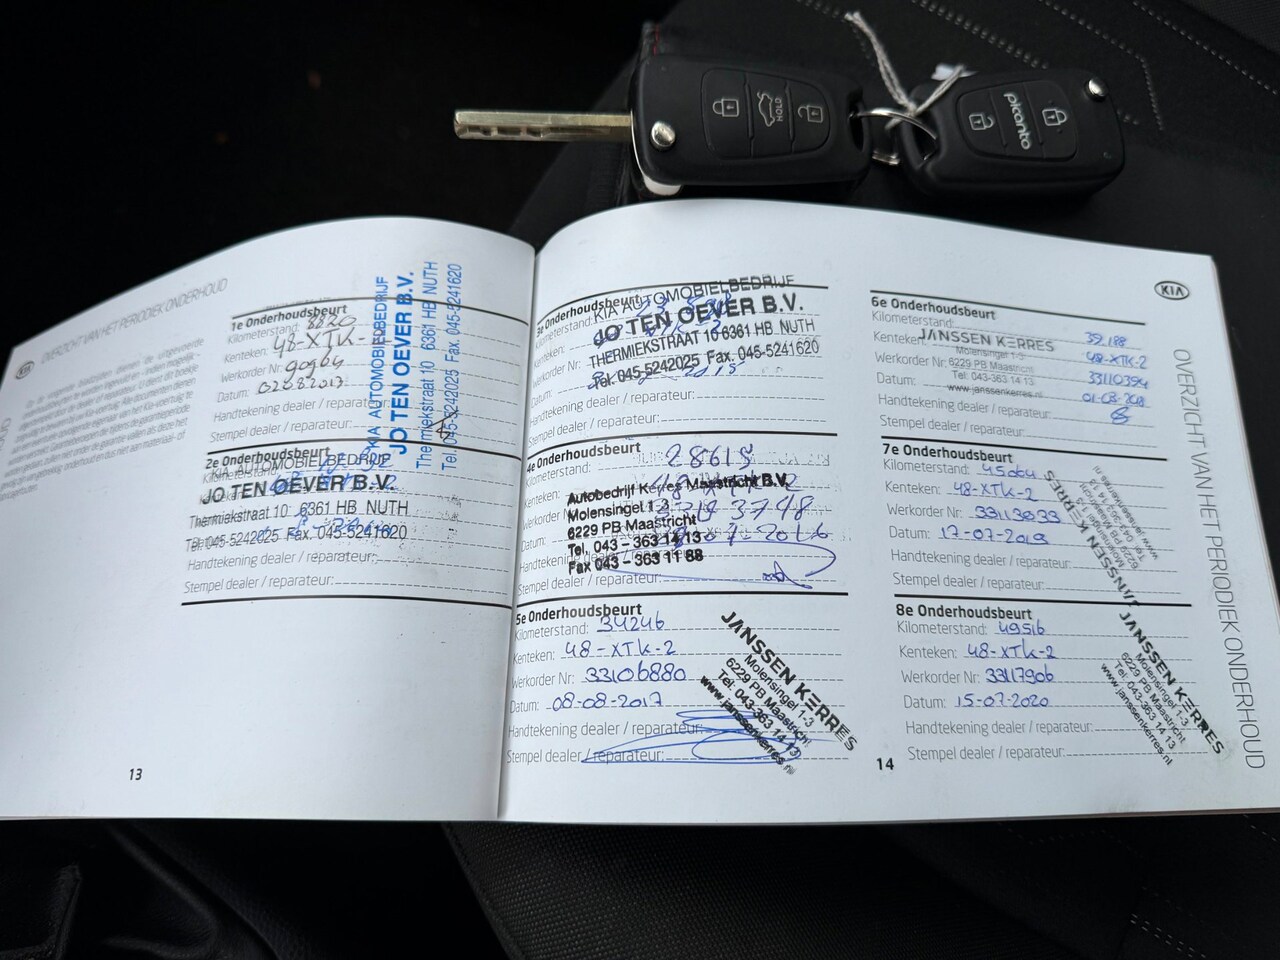 HOLD
picanto
KIA
OVERZICHT VAN HET PERIODIEK ONDERHOUD
1e Onderhoudsbeurt
Kilometerstand: 8820
Kenteken: 48-XTK-2
Werkorder Nr: 90964
Datum:
Handtekening dealer / reparateur:
Stempel dealer / reparateur:
KIA AUTOMOBIELBEDRIJF
JO TEN OEVER B.V.
Thermiekstraat 10 6361 HB NUTH
Tel. 045-5242025 Fax. 045-5241620
2e Onderhoudsbeurt
Kilometerstand:
KIA AUTOMOBIELBEDRIJF
JO TEN OEVER B.V.
Thermiekstraat 10 6361 HB NUTH
Tel. 045-5242025 Fax. 045-5241620
Handtekening dealer / reparateur:
Stempel dealer / reparateur:
13
3e Onderhoudsbeurt
Kilometerstand:
Kenteken:
Werkorder Nr:
Datum:
KIA AUTOMOBIELBEDRIJF
JO TEN OEVER B.V.
THERMIEKSTRAAT 10 6361 HB NUTH
Tel. 045-5242025 Fax. 045-5241620
Handtekening dealer / reparateur:
Stempel dealer / reparateur:
4e Onderhoudsbeurt
Kilometerstand: 28615
Kenteken:
Werkorder
Datum:
Autobedrijf Kerres Maastricht B.V.
Molensingel 1-3
6229 PB Maastricht
Tel. 043 – 363 14 13
Fax 043 – 363 11 88
Handtekening dealer / reparateur:
Stempel dealer / reparateur:
5e Onderhoudsbeurt
Kilometerstand: 34246
Kenteken: 48-XTK-2
Werkorder Nr: 33106880
Datum: 08-08-2017
Handtekening dealer / reparateur:
Stempel dealer / reparateur:
JANSSEN KERRES
Molensingel 1-3
6229 PB Maastricht
Tel. 043-363 14 13
www.janssenkerres.nl
14
KIA
6e Onderhoudsbeurt
Kilometerstand: 39.188
Kenteken: 48-XTK-2
Werkorder Nr: 33110394
Datum:
JANSSEN KERRES
Molensingel 1-3
6229 PB Maastricht
Tel. 043-363 14 13
www.janssenkerres.nl
Handtekening dealer / reparateur:
Stempel dealer / reparateur:
7e Onderhoudsbeurt
Kilometerstand: 45064
Kenteken: 48-XTK-2
Werkorder Nr: 33113833
Datum: 17-07-2019
Handtekening dealer / reparateur:
Stempel dealer / reparateur:
JANSSEN KERRES
8e Onderhoudsbeurt
Kilometerstand: 49516
Kenteken: 48-XTK-2
Werkorder Nr: 33117906
Datum: 15-07-2020
Handtekening dealer / reparateur:
Stempel dealer / reparateur:
JANSSEN KERRES
Molensingel 1-3
6229 PB Maastricht
Tel. 043-363 14 13
www.janssenkerres.nl
OVERZICHT VAN HET PERIODIEK ONDERHOUD